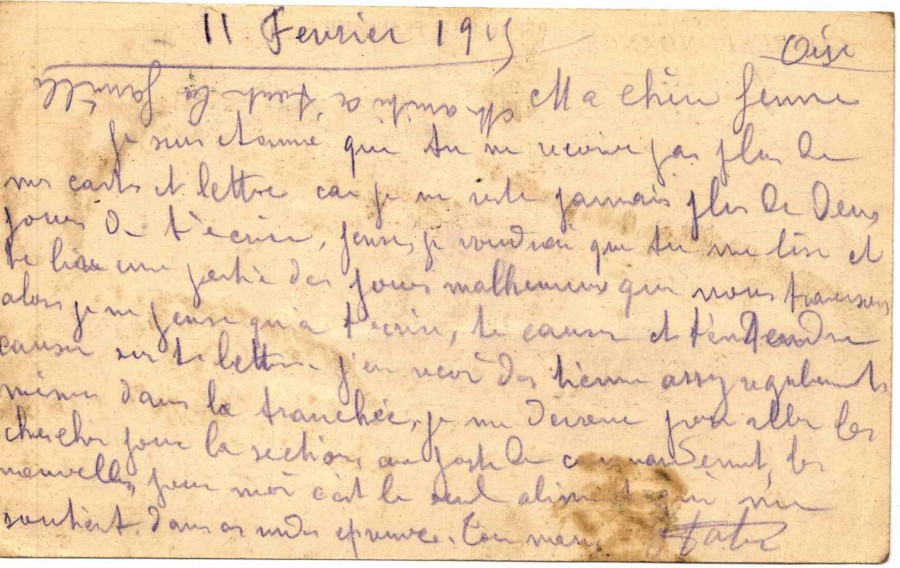 11 Fevrier 1915
Oise
Ma chère femme
Je suis etonné que tu ne recoive pas plus de
mes cartes et lettre car je ne reste jamais plus de deux
jours de t'écrire, pense, je voudrai que tu me lise et
te lire une partie des jours malheureux que nous traversons
alors je ne pense qu'à t'écrire, te causer et t'entendre
causer sur ta lettre. j'en recoi des tienne assez regulierement
même dans la tranchée, je me devoue pour aller les
chercher pour la section au poste de commandement, les
nouvelles pour moi c'est le seul aliment qui me
soutient dans ces rudes epreuves. Ton mari
amitié à toute la famille